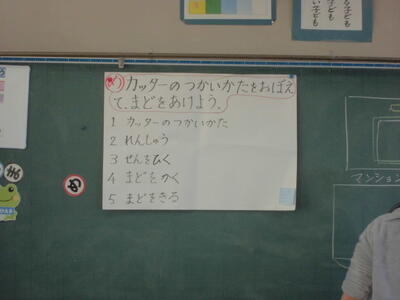 め カッターのつかいかたをおぼえ
て、まどをあけよう。
1 カッターのつかいかた
2 れんしゅう
3 せんをひく
4 まどをかく
5 まどをきる
ま
め
マンション